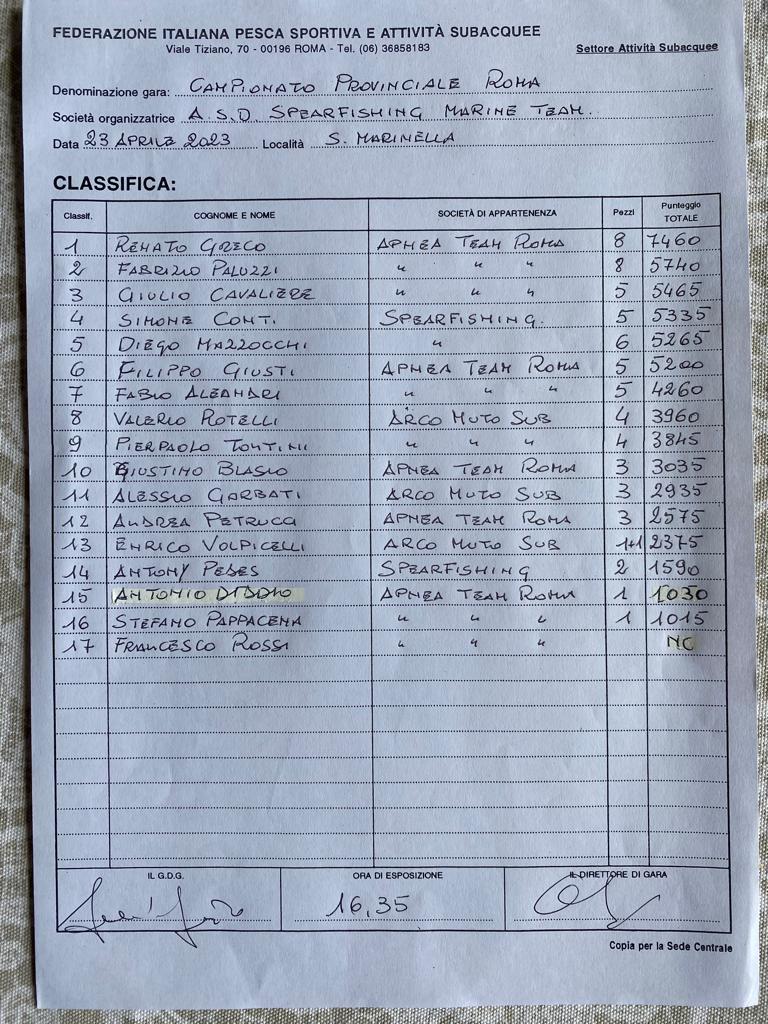 FEDERAZIONE ITALIANA PESCA SPORTIVA E ATTIVITÀ SUBACQUEE
Viale Tiziano, 70 - 00196 ROMA - Tel. (06) 36858183
Settore Attività Subacquee
Denominazione gara: CAMPIONATO PROVINCIALE ROMA
Società organizzatrice A.S.D. SPEARFISHING MARINE TEAM.
Data 23 APRILE 2023 Località S. MARINELLA
CLASSIFICA:
Classif. COGNOME E NOME SOCIETÀ DI APPARTENENZA Pezzi Punteggio TOTALE
1 RENATO GRECO APNEA TEAM ROMA 8 7460
2 FABRIZIO PALUZZI " " " 8 5740
3 GIULIO CAVALIERE " " " 5 5465
4 SIMONE CONTI SPEARFISHING. 5 5335
5 DIEGO MAZZOCCHI " 6 5265
6 FILIPPO GIUSTI APNEA TEAM ROMA 5 5200
7 FABIO ALEANDRI " " " 5 4260
8 VALERIO ROTELLI ARCO MUTO SUB 4 3960
9 PIERPAOLO " " " 4 3845
10 GIUSTINO BLASIO APNEA TEAM ROMA 3 3035
11 ALESSIO GARBATI ARCO MUTO SUB 3 2935
12 ANDREA PETRUCCI APNEA TEAM ROMA 3 2575
13 ENRICO VOLPICELLI ARCO MUTO SUB 1+1 2375
14 ANTONY SPEARFISHING 2 1590
15 ANTONIO APNEA TEAM ROMA 1 1030
16 STEFANO PAPPACENA " " " 1 1015
17 FRANCESCO ROSSI " " " NC
IL G.D.G. ORA DI ESPOSIZIONE IL DIRETTORE DI GARA
16,35
Copia per la Sede Centrale